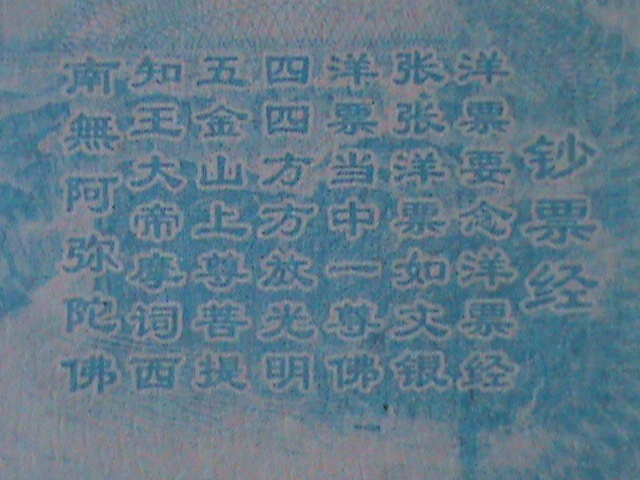 钞票经
洋票要念洋票经
张张洋票如文银
洋票当中一尊佛
四四方方放光明
五金山上尊菩提
知王大帝摩词西
南無阿弥陀佛